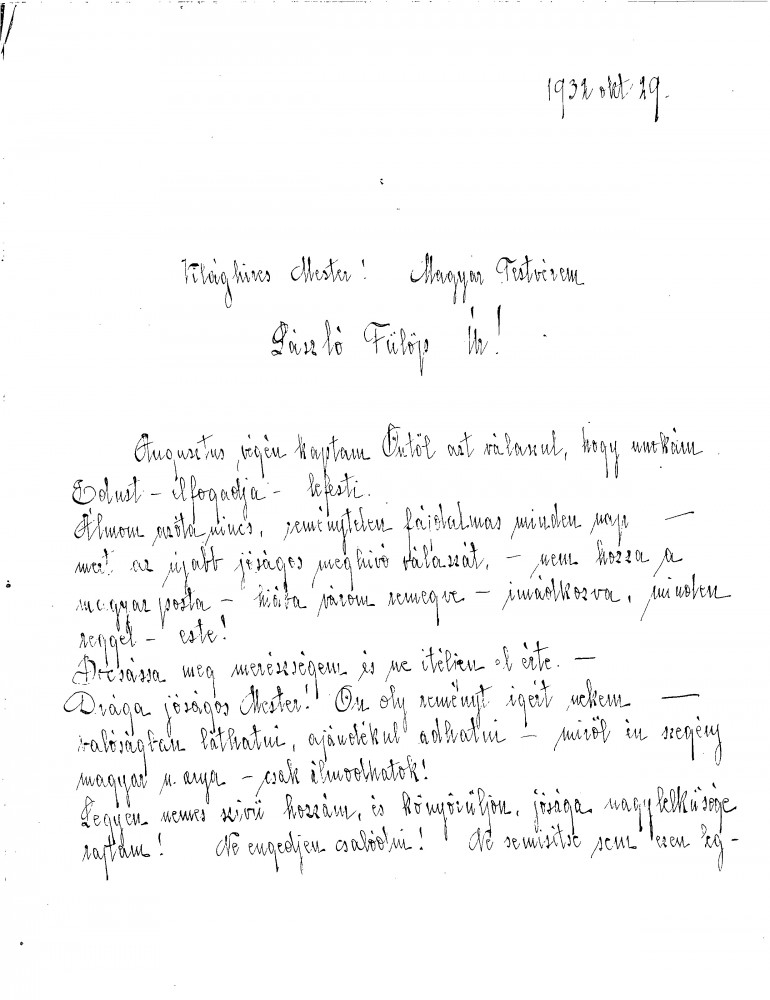 1932 okt 29.
Világhires Mester! Magyar Testvérem
László Fülöp Úr!
Augusztus végén kaptam Öntöl azt válaszul, hogy unokám
Edust – elfogadja – lefesti.
Álmom azóta nincs, reménytelen fájdalmas minden nap —
mert az újabb jóságos meghivó válaszát, – nem hozza a
magyar posta – hiába várom remegve – imádkozva, minden
reggel – este!
Bocsássa meg merészségem és ne itéljen el érte. —
Drága jóságos Mester! Ön oly reményt igért nekem —
valóságban láthatni, ajándékul adhatni – miröl én szegény
magyar n. anya – csak álmodhatok!
Legyen nemes szivü hozzám, és könyörüljön, jósága nagylelküsége
rajtam! Ne engedjen csalódni! Ne semisitse sem ezen leg-